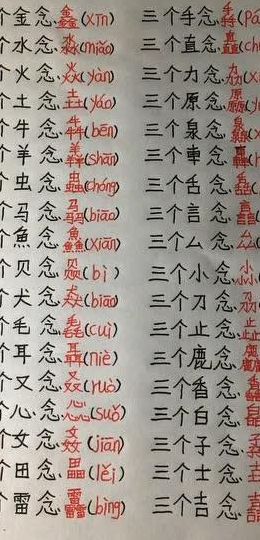 个金念.鑫(xīn)
个水念.淼(miǎo)
个火念.焱(yàn)
个土念.垚(yáo)
个牛念.犇(bēn)
个羊念.羴(shān)
个虫念.蟲(chóng)
个马念.骉(biāo)
个魚念.鱻(xiān)
个贝念.赑(bì)
个犬念.猋(biāo)
个毛念.毳(cuì)
个耳念.聶(niè)
个又念.叒(ruò)
个心念.惢(suǒ)
个女念.姦(jiān)
个田念.畾(lěi)
个雷念.靐(bìng)
三个手念.掱(pá
三个直念.矗(ch
三个力念.劦(xi
三个原念.厵(y
三个泉念.灥(x
三个車念.轟(h
三个舌念.舙(
三个言念.譶(
三个厶念.厽(
三个小念.尛(
三个刀念.刕
三个止念.歮
三个鹿念.麤
三个香念.馫
三个白念.皛
三个子念.孨
三个士念.壵
三个吉念.嚞